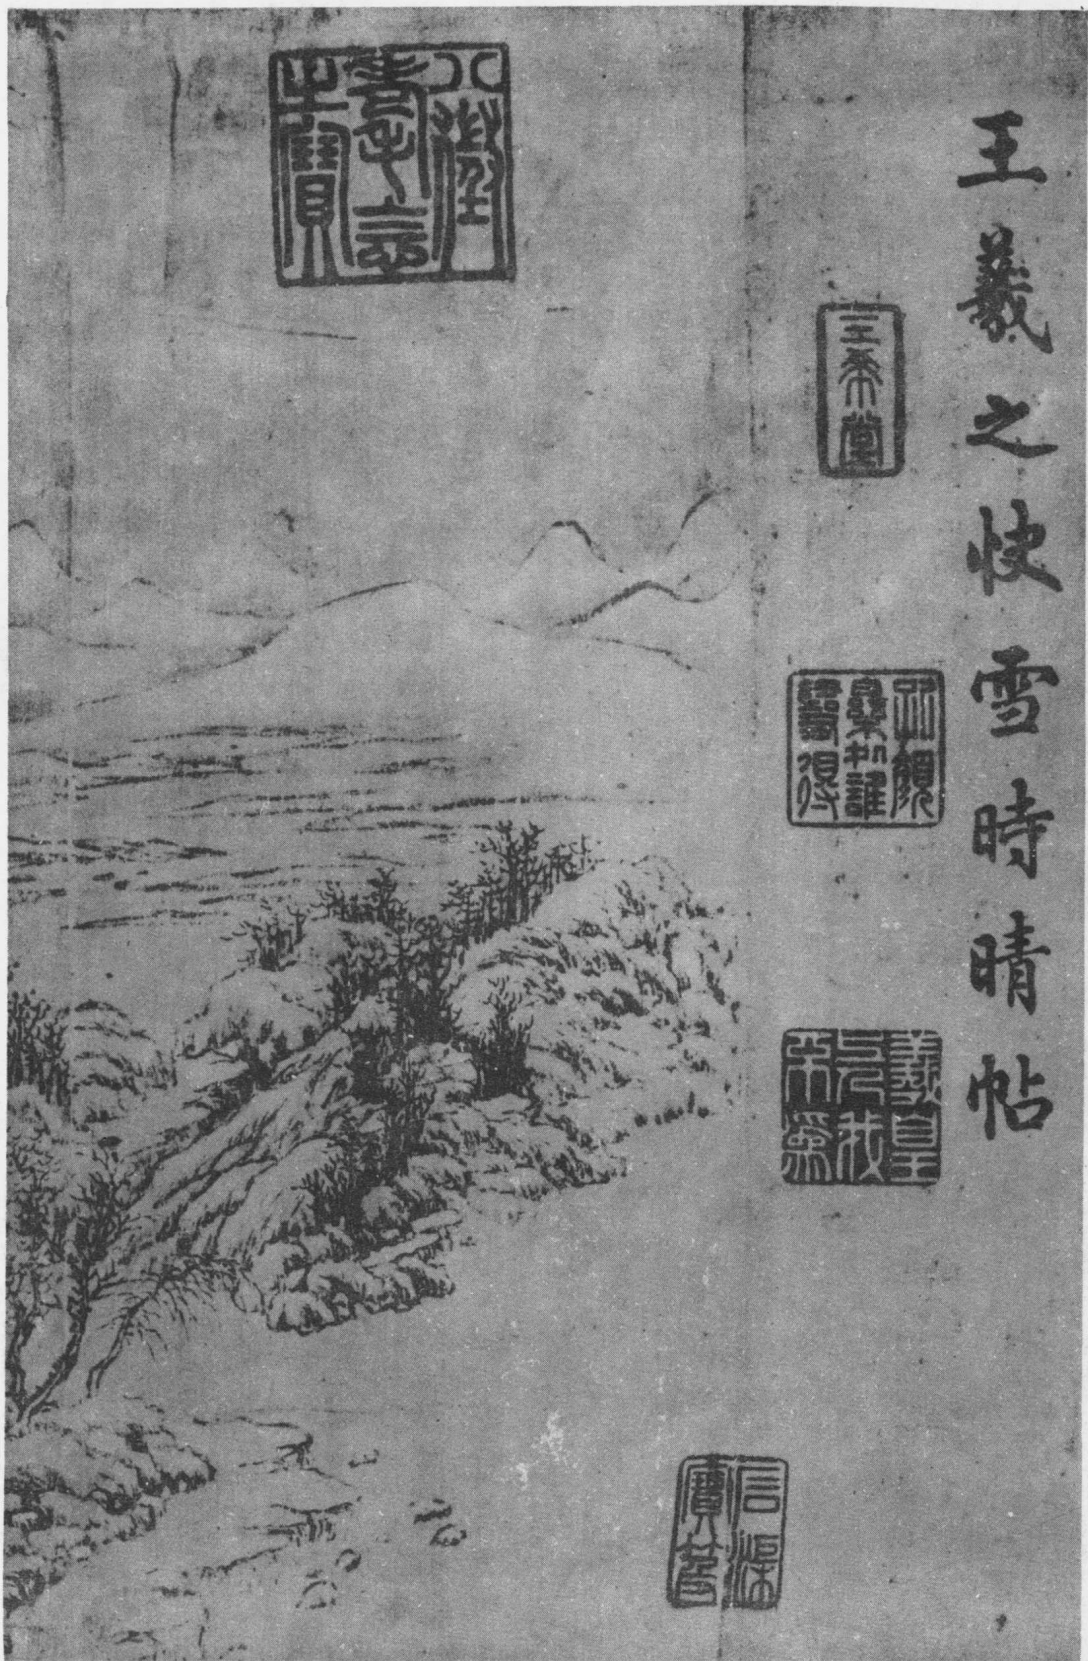 王羲之快雪時晴帖
三希堂
石渠
寶笈
八徵
耄念
之寶